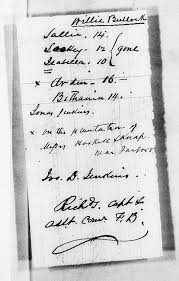 Willie Bullock
Sallie. 14.
Lucky. 12 } gone
Isabella. 10
x Arden - 16 -
Bethania 14.
Jonas Jenkins.
x on the plantation of
Messrs Haskell & Knap
near
Jno. D. Jenkins.
Richd. Capt &
Asst. Comr F.B.